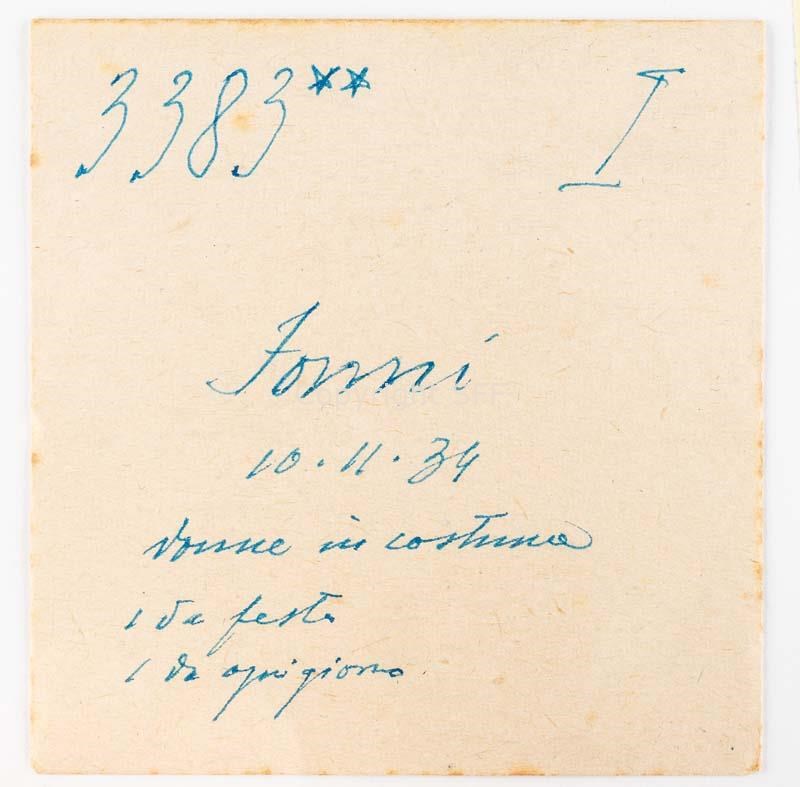 3383** I
Fonni
10.11.34
donne in costume
1 da festa
1 da ogni giorno